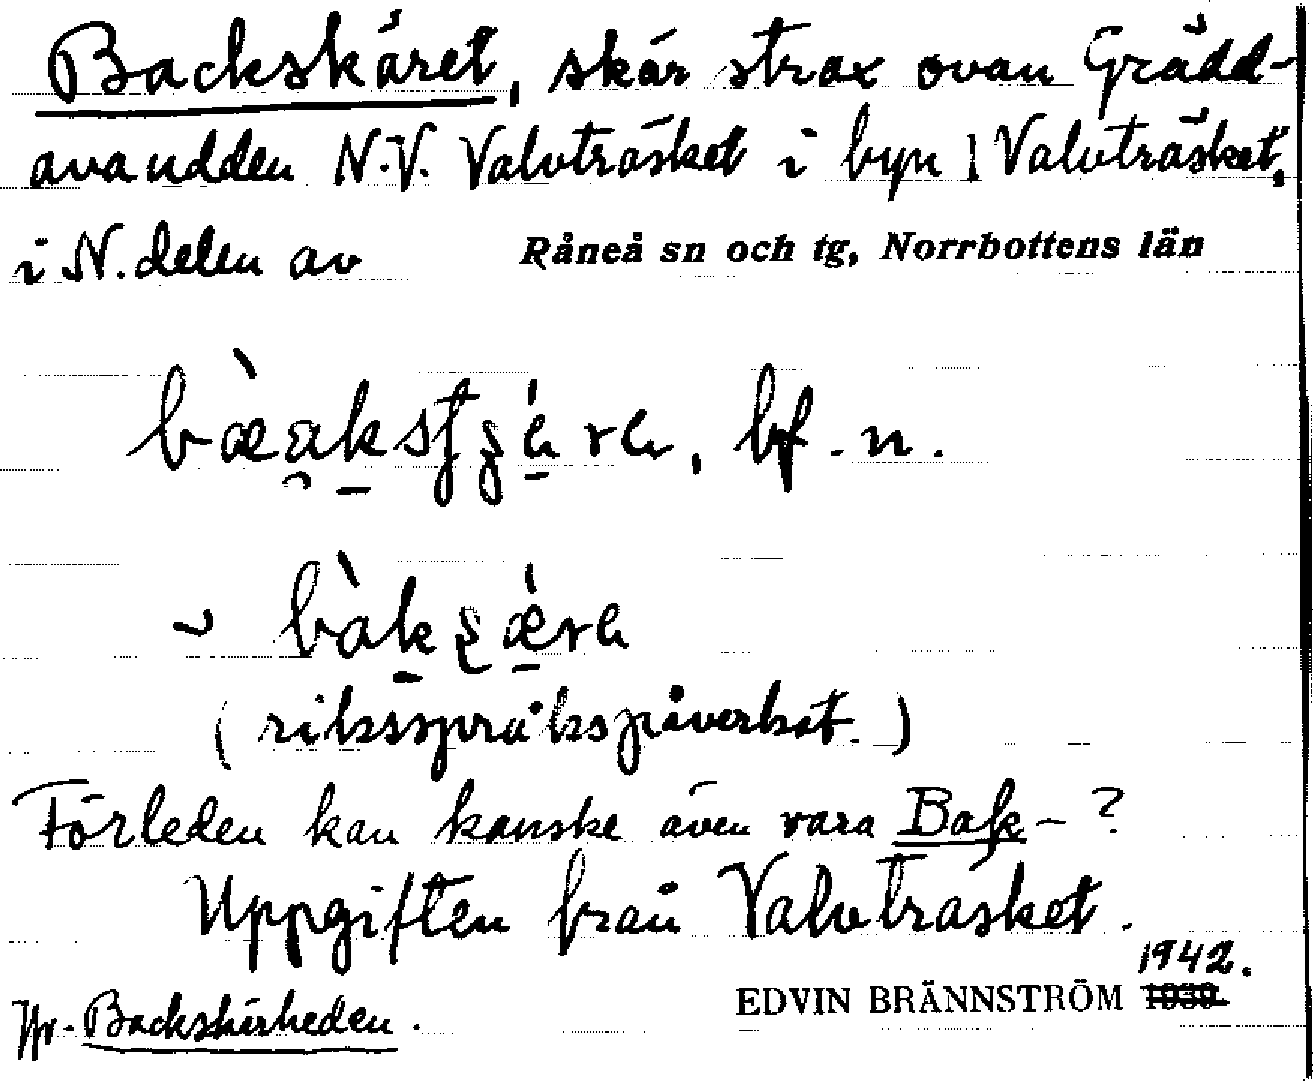 Backskäret, skär strax ovan Grädd-
avaudden N.V. Valvträsket i byn / Valvträsket,
i N. delen av Råneå sn och tg, Norrbottens län
bf. n.
(riksspråkspåverkat.)
Förleden kan kanske även vara Bak- ?
Uppgiften från Valvträsket.
1942.
EDVIN BRÄNNSTRÖM 1930.
Jfr. Backskärheden.